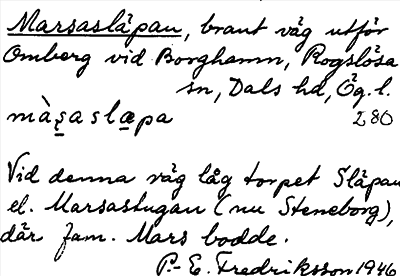 Marsasläpan, brant väg utför
Omberg vid Borghamn, Rogslösa
sn, Dals hd, Ög. l.
màs̨aslæ̣pa 280
Vid denna väg låg torpet Släpan
el. Marsastugan (nu Steneborg),
där fam. Mars bodde.
P.-E. Fredriksson 1946